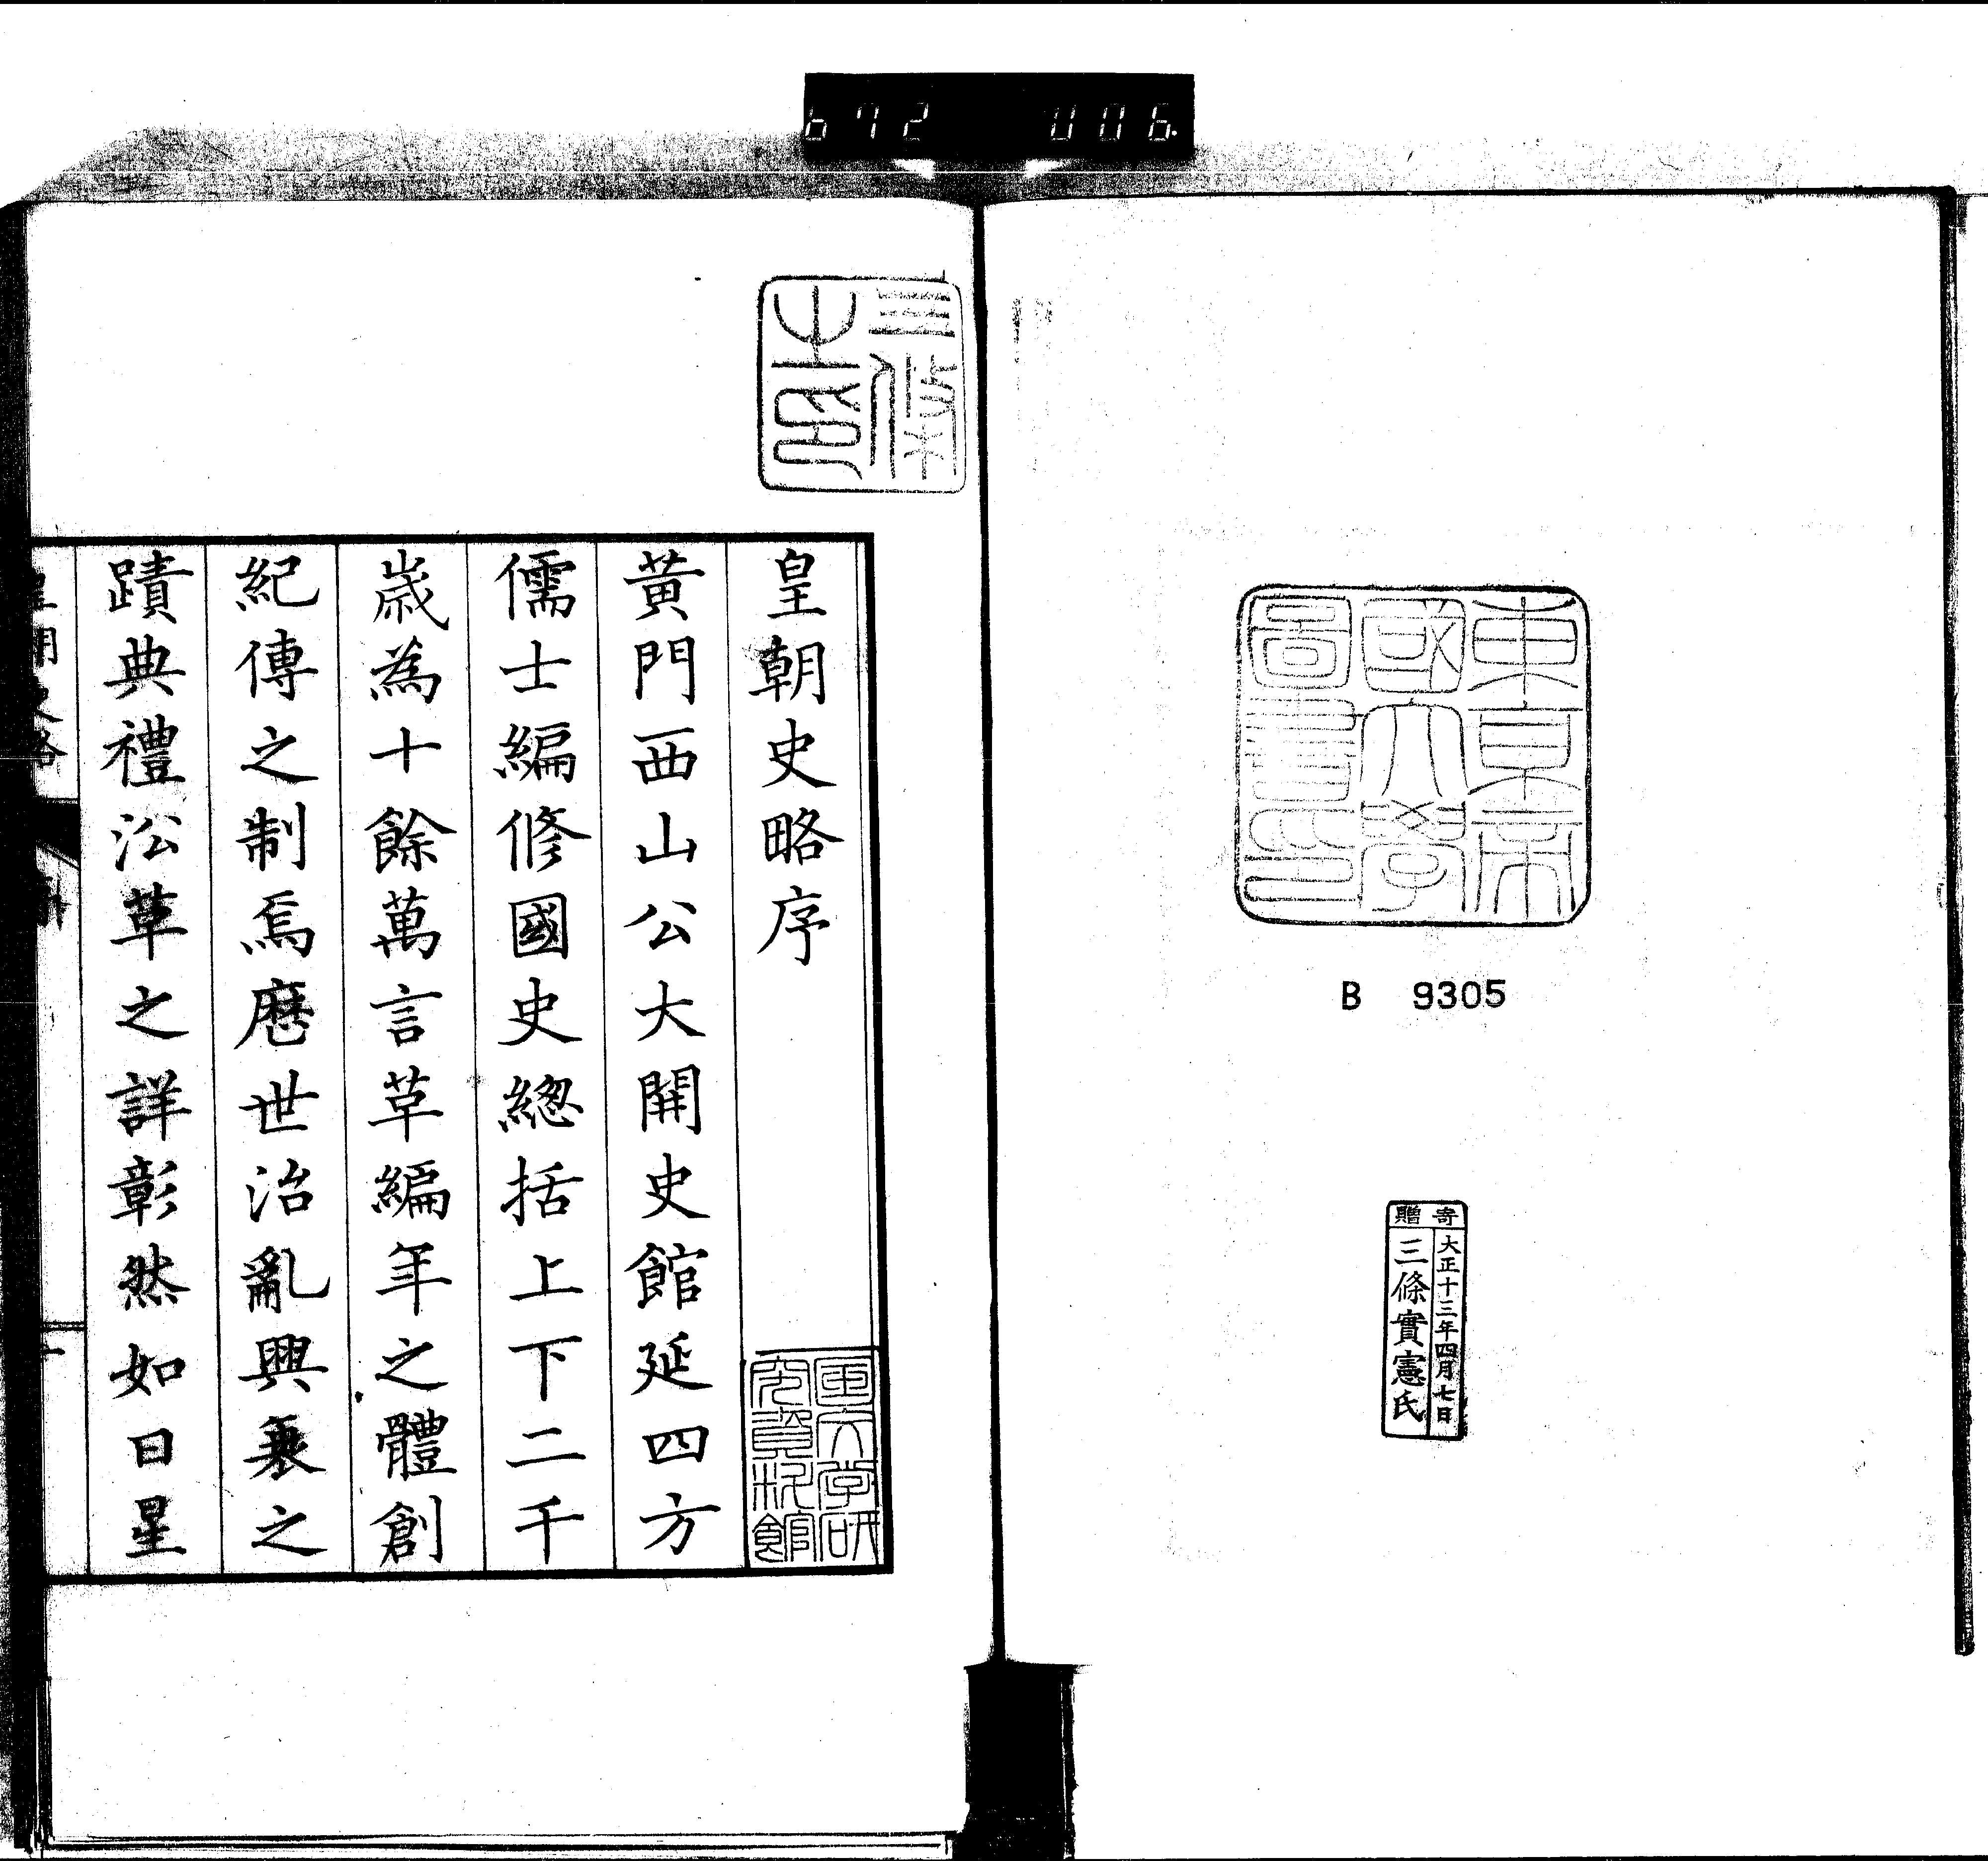 672 006.
東京帝
國大學
圖書印
B 9305
寄贈
大正十三年四月七日
三條實憲氏
三條
之印
皇朝史略序
国文学研
究資料館
黄門西山公大開史館延四方
儒士編修國史總括上下二千
歳為十餘萬言草編年之體創
紀傳之制焉歷世治亂興衰之
蹟典禮㳂草之詳彰然如日星